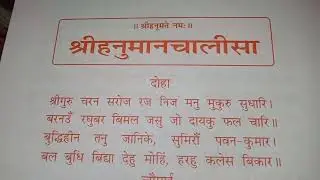 ॥ श्रीहनुमते नमः ॥
श्रीहनुमानचालीसा
दोहा
श्रीगुरु चरन सरोज रज निज मनु मुकुरु सुधारि।
बरनउँ रघुबर बिमल जसु जो दायकु फल चारि॥
बुद्धिहीन तनु जानिके, सुमिरौं पवन-कुमार।
बल बुधि बिद्या देहु मोहिं, हरहु कलेस बिकार॥